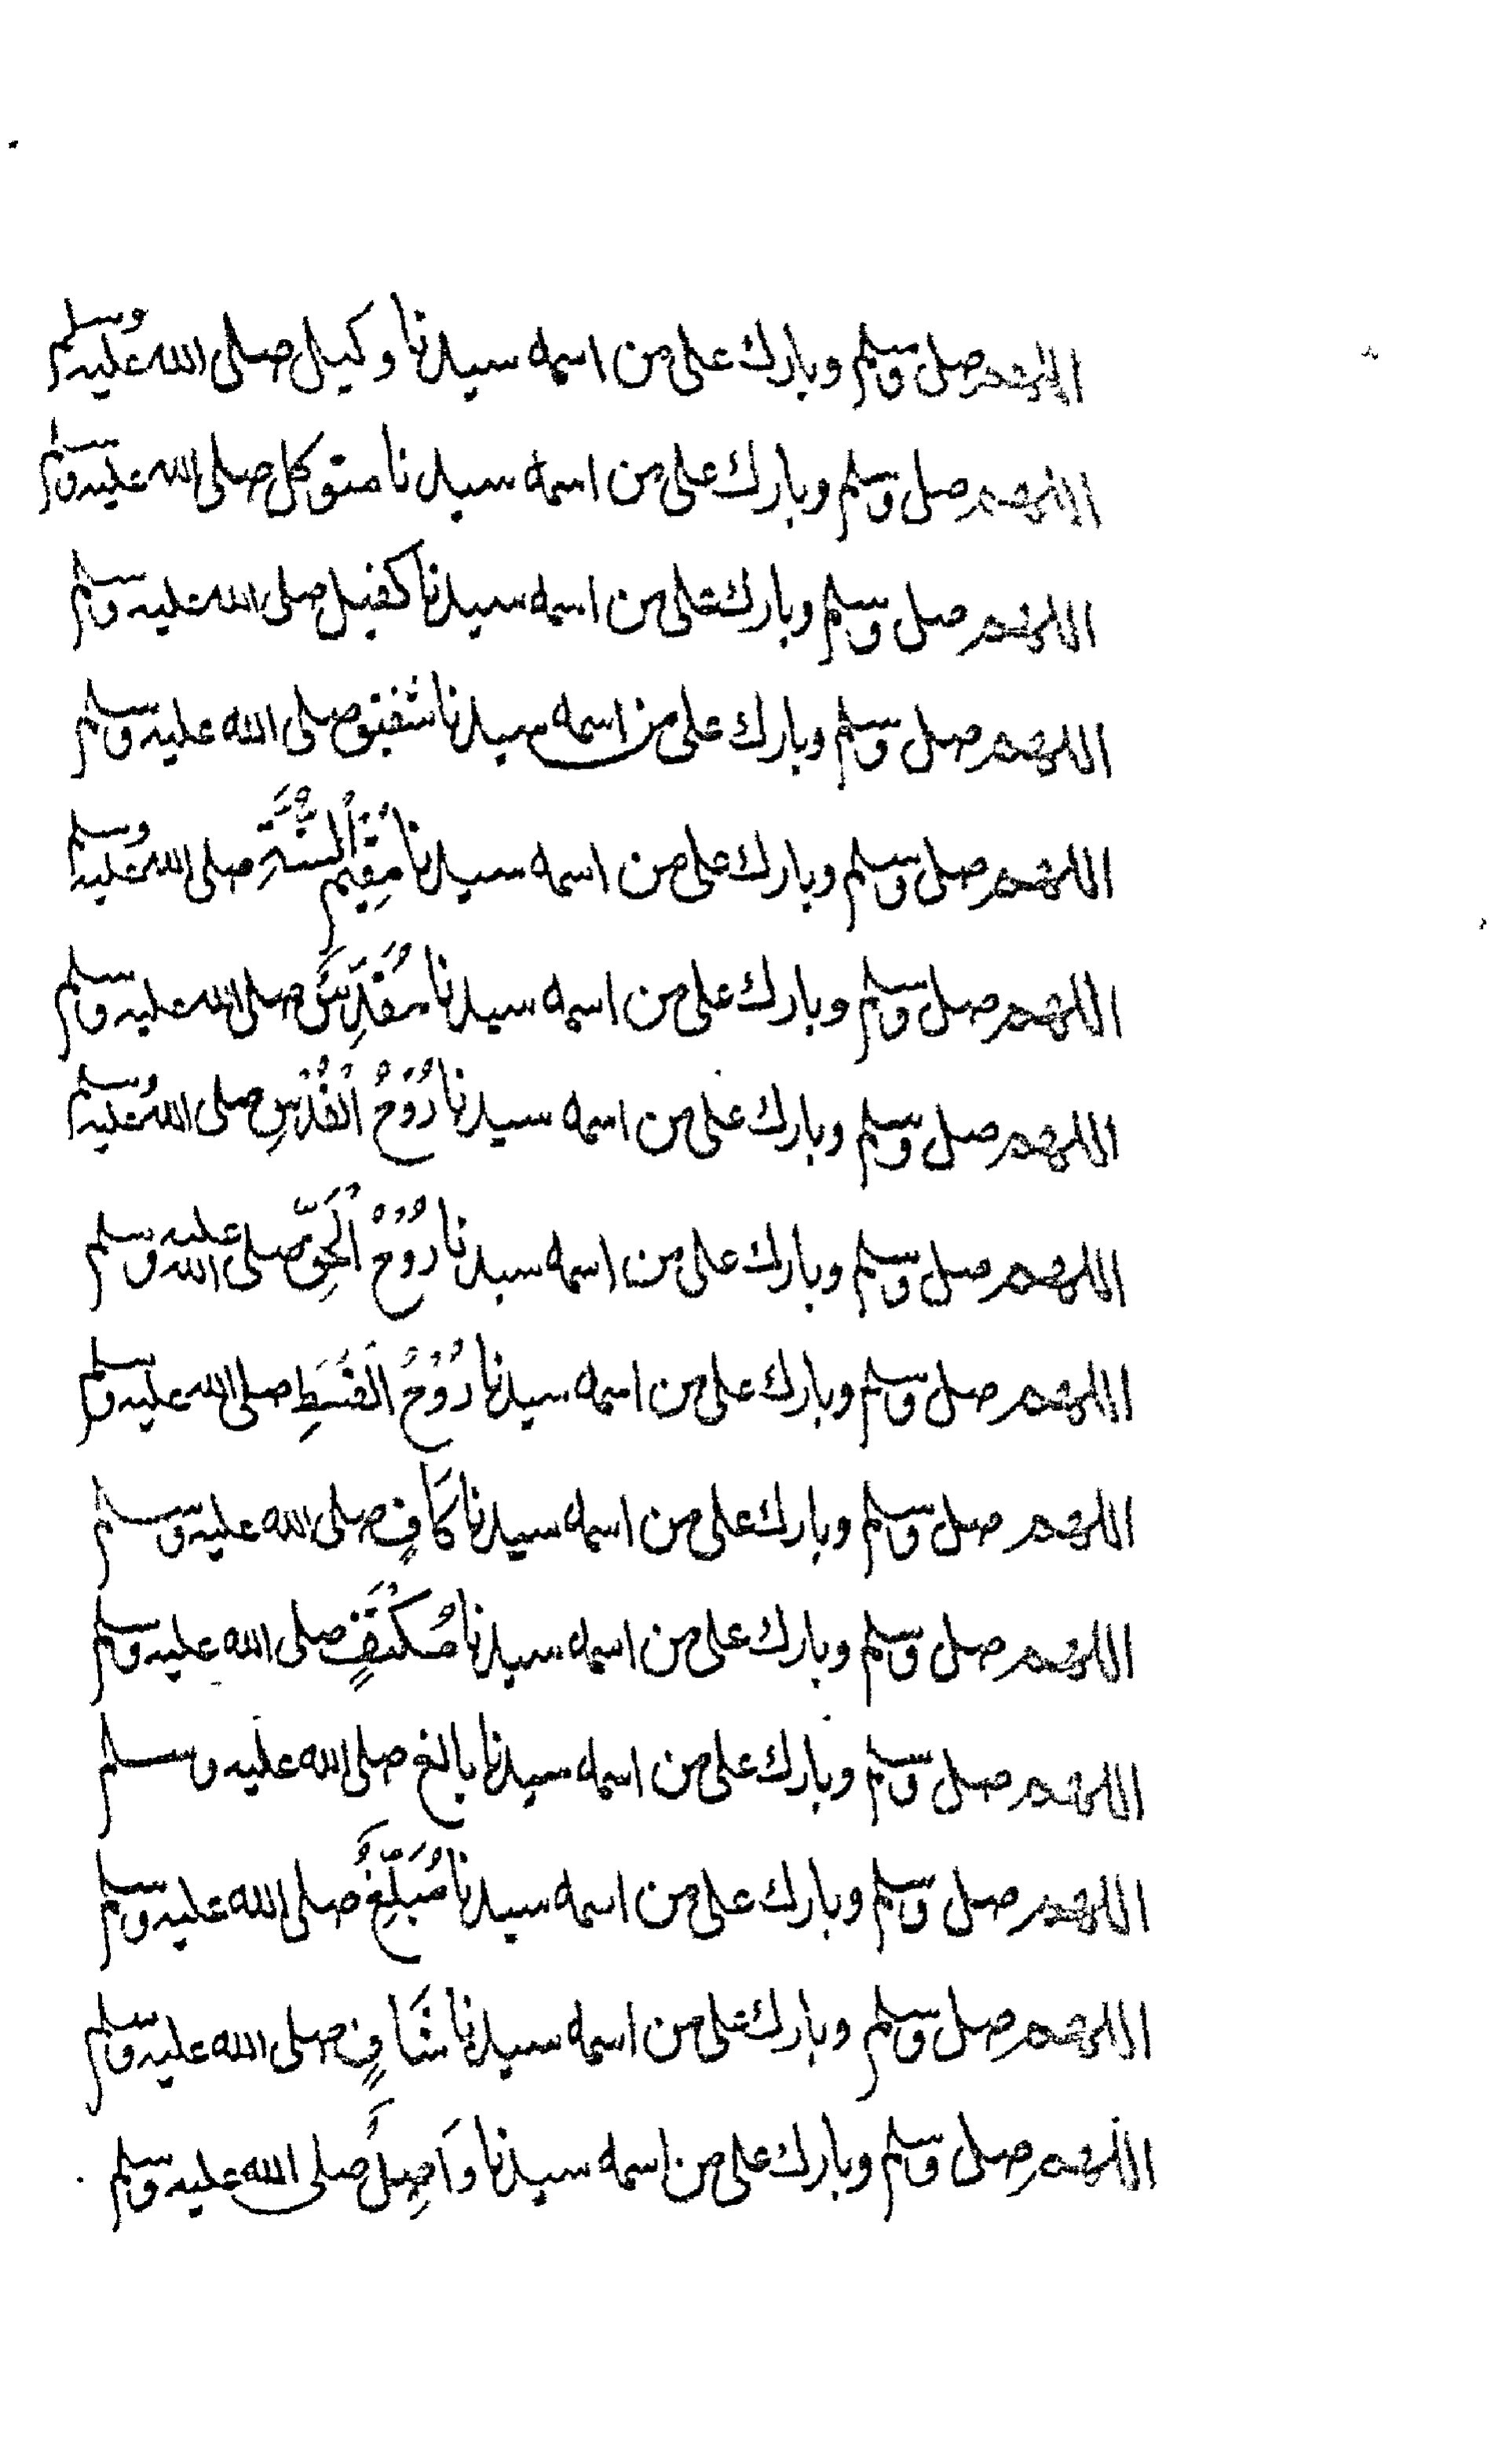 اللهم صل وسلم وبارك على من اسمه سيدنا وكيل صلى الله عليه وسلم
اللهم صل وسلم وبارك على من اسمه سيدنا متوكل صلى الله عليه وسلم
اللهم صل وسلم وبارك على من اسمه سيدنا كفيل صلى الله عليه وسلم
اللهم صل وسلم وبارك على من اسمه سيدنا شفيق صلى الله عليه وسلم
اللهم صل وسلم وبارك على من اسمه سيدنا مُقِيمُ السُّنَّةِ صلى الله عليه وسلم
اللهم صل وسلم وبارك على من اسمه سيدنا مُقَدَّسٌ صلى الله عليه وسلم
اللهم صل وسلم وبارك على من اسمه سيدنا رُوْحُ الْقُدُسِ صلى الله عليه وسلم
اللهم صل وسلم وبارك على من اسمه سيدنا رُوْحُ الْحَقِّ صلى الله عليه وسلم
اللهم صل وسلم وبارك على من اسمه سيدنا رُوْحُ الْقِسْطِ صلى الله عليه وسلم
اللهم صل وسلم وبارك على من اسمه سيدنا كَافٍ صلى الله عليه وسلم
اللهم صل وسلم وبارك على من اسمه سيدنا مُكْتَفٍ صلى الله عليه وسلم
اللهم صل وسلم وبارك على من اسمه سيدنا بالغ صلى الله عليه وسلم
اللهم صل وسلم وبارك على من اسمه سيدنا مُبَلِّغٌ صلى الله عليه وسلم
اللهم صل وسلم وبارك على من اسمه سيدنا شَافٍ صلى الله عليه وسلم
اللهم صل وسلم وبارك على من اسمه سيدنا وَاصِلٌ صلى الله عليه وسلم